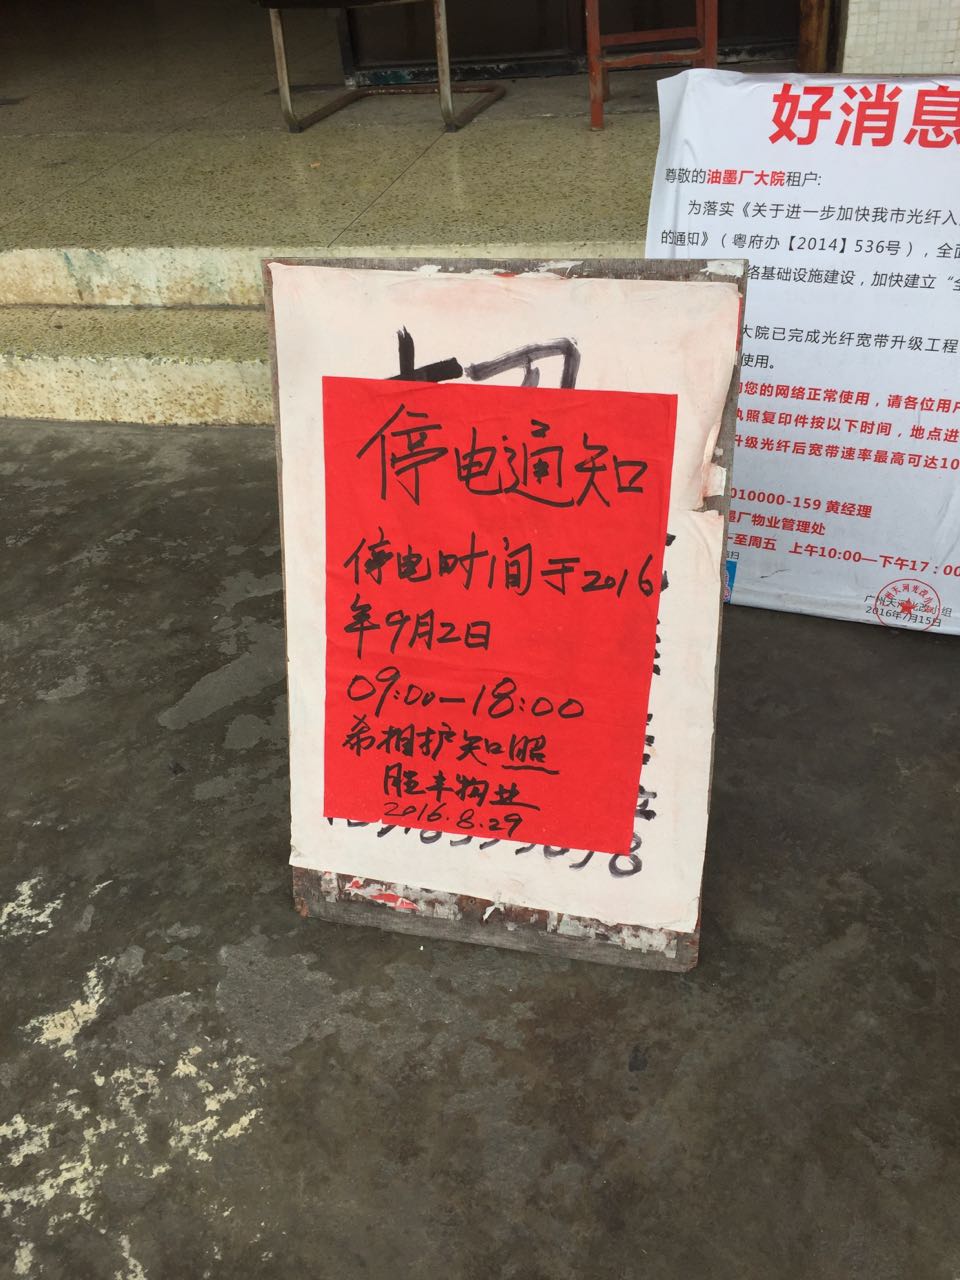 停电通知
停电时间于2016
年9月2日
09:00—18:00
希相护知照
胜丰物业
2016.8.29
好消息
尊敬的油墨厂大院租户:
为落实《关于进一步加快我市光纤入
的通知》（粤府办【2014】536号），全面
络基础设施建设，加快建立“全
大院已完成光纤宽带升级工程
使用。
您的网络正常使用，请各位用户
执照复印件按以下时间，地点进
升级光纤后宽带速率最高可达10
010000-159 黄经理
墨厂物业管理处
一至周五 上午10:00—下午17：00
扫
广州天河光改小组
2016年7月15日